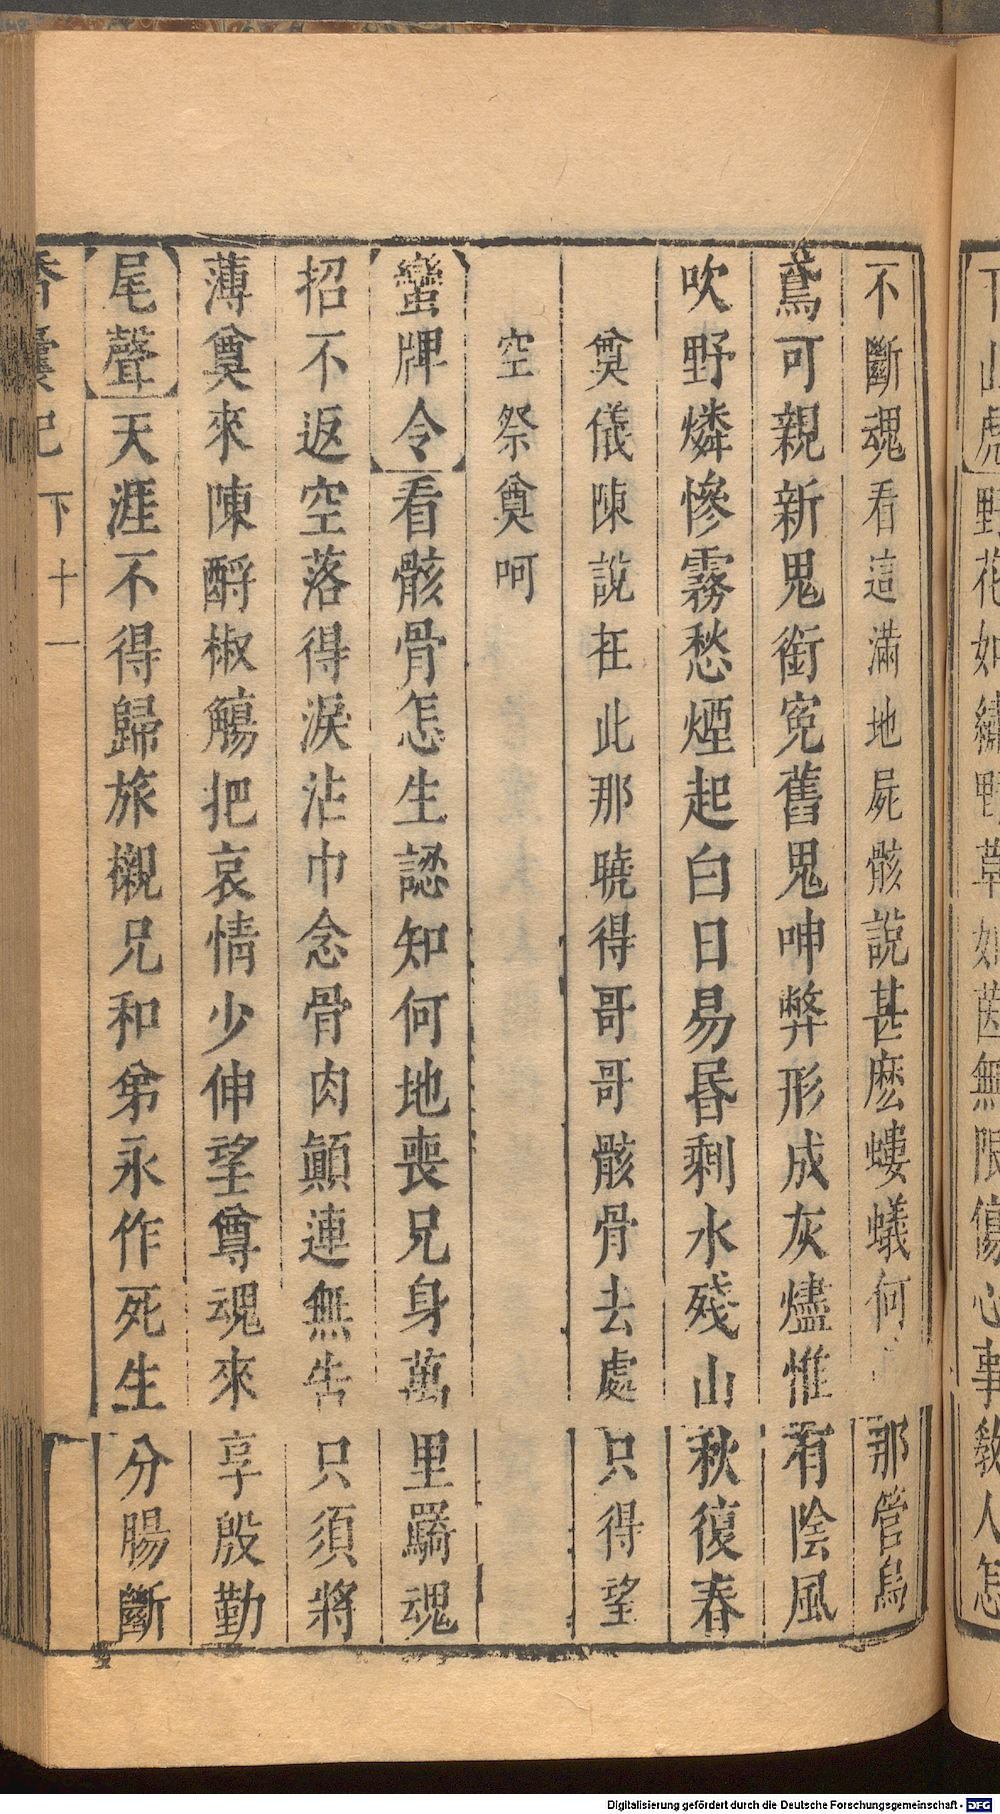 下山虎野花如繡野草如茵無限傷心事教人怎
不斷魂看這滿地屍骸說甚麽螻蟻何那管烏
鳶可親新鬼銜冤舊鬼呻弊形成灰燼惟有陰風
吹野燐慘霧愁煙起白日易昏剩水殘山秋復春
奠儀陳說在此那曉得哥哥骸骨去處只得望
空祭奠呵
蠻牌令看骸骨怎生認知何地喪兄身萬里羈魂
招不返空落得淚沾巾念骨肉顛連無告只須將
薄奠來陳酹椒觴把哀情少伸望尊魂來享殷勤
尾聲天涯不得歸旅櫬兄和弟永作死生分腸斷
香囊記 下十一
Digitalisierung gefördert durch die Deutsche Forschungsgemeinschaft - DFG